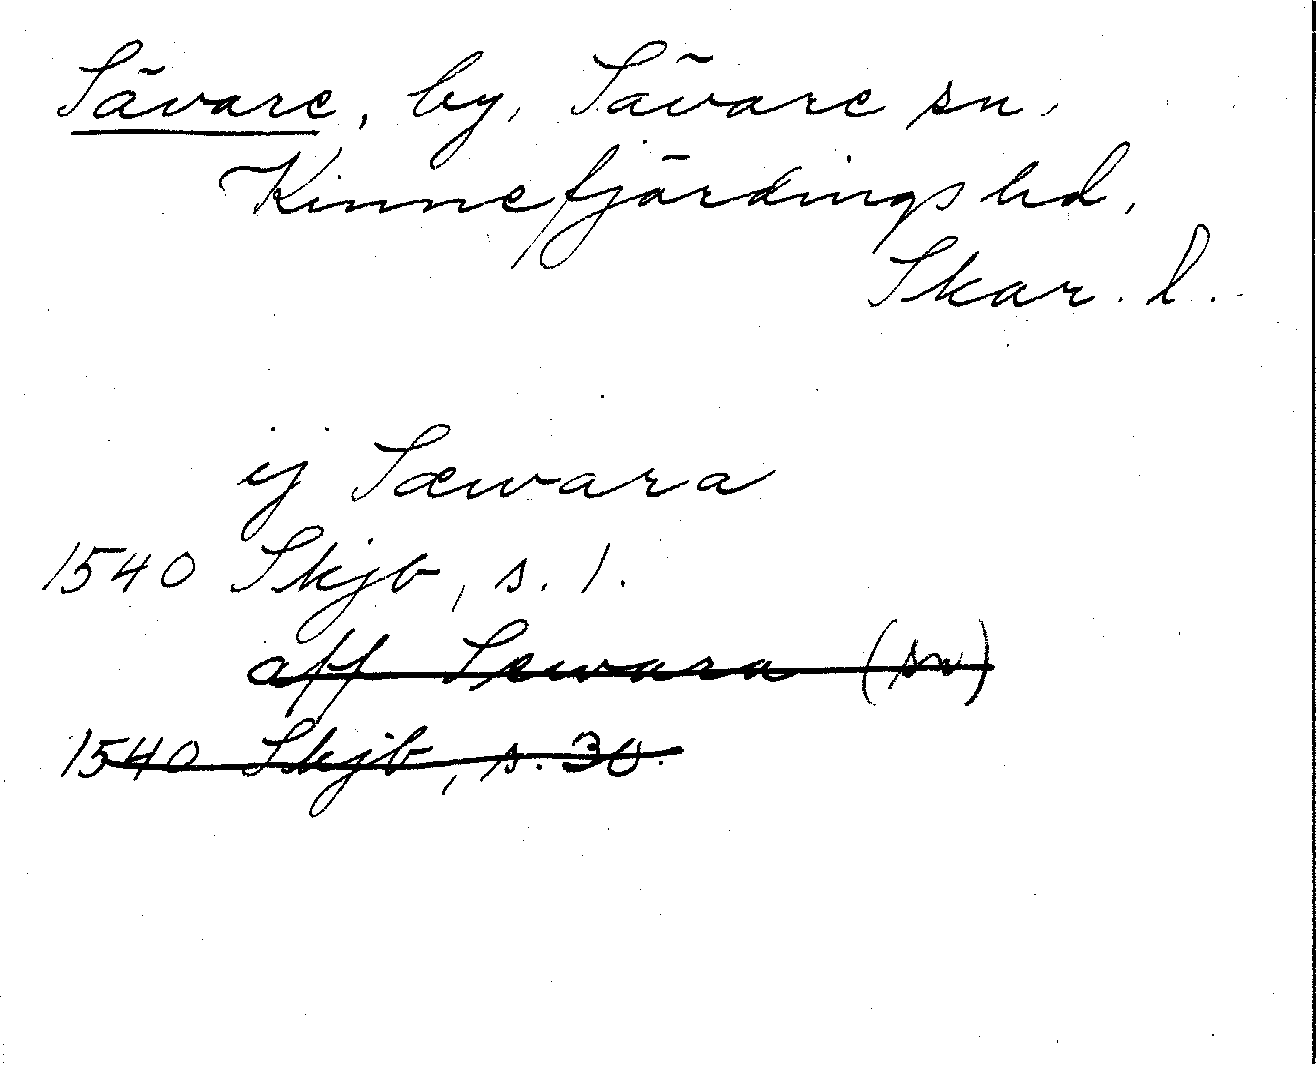 Sävare, by, Sävare sn,
Kinnefjärdings hd,
Skar. l.
ij Sæwara
1540 Skjb, s. 1.
aff Sewara (sn)
1540 Skjb, s. 30.